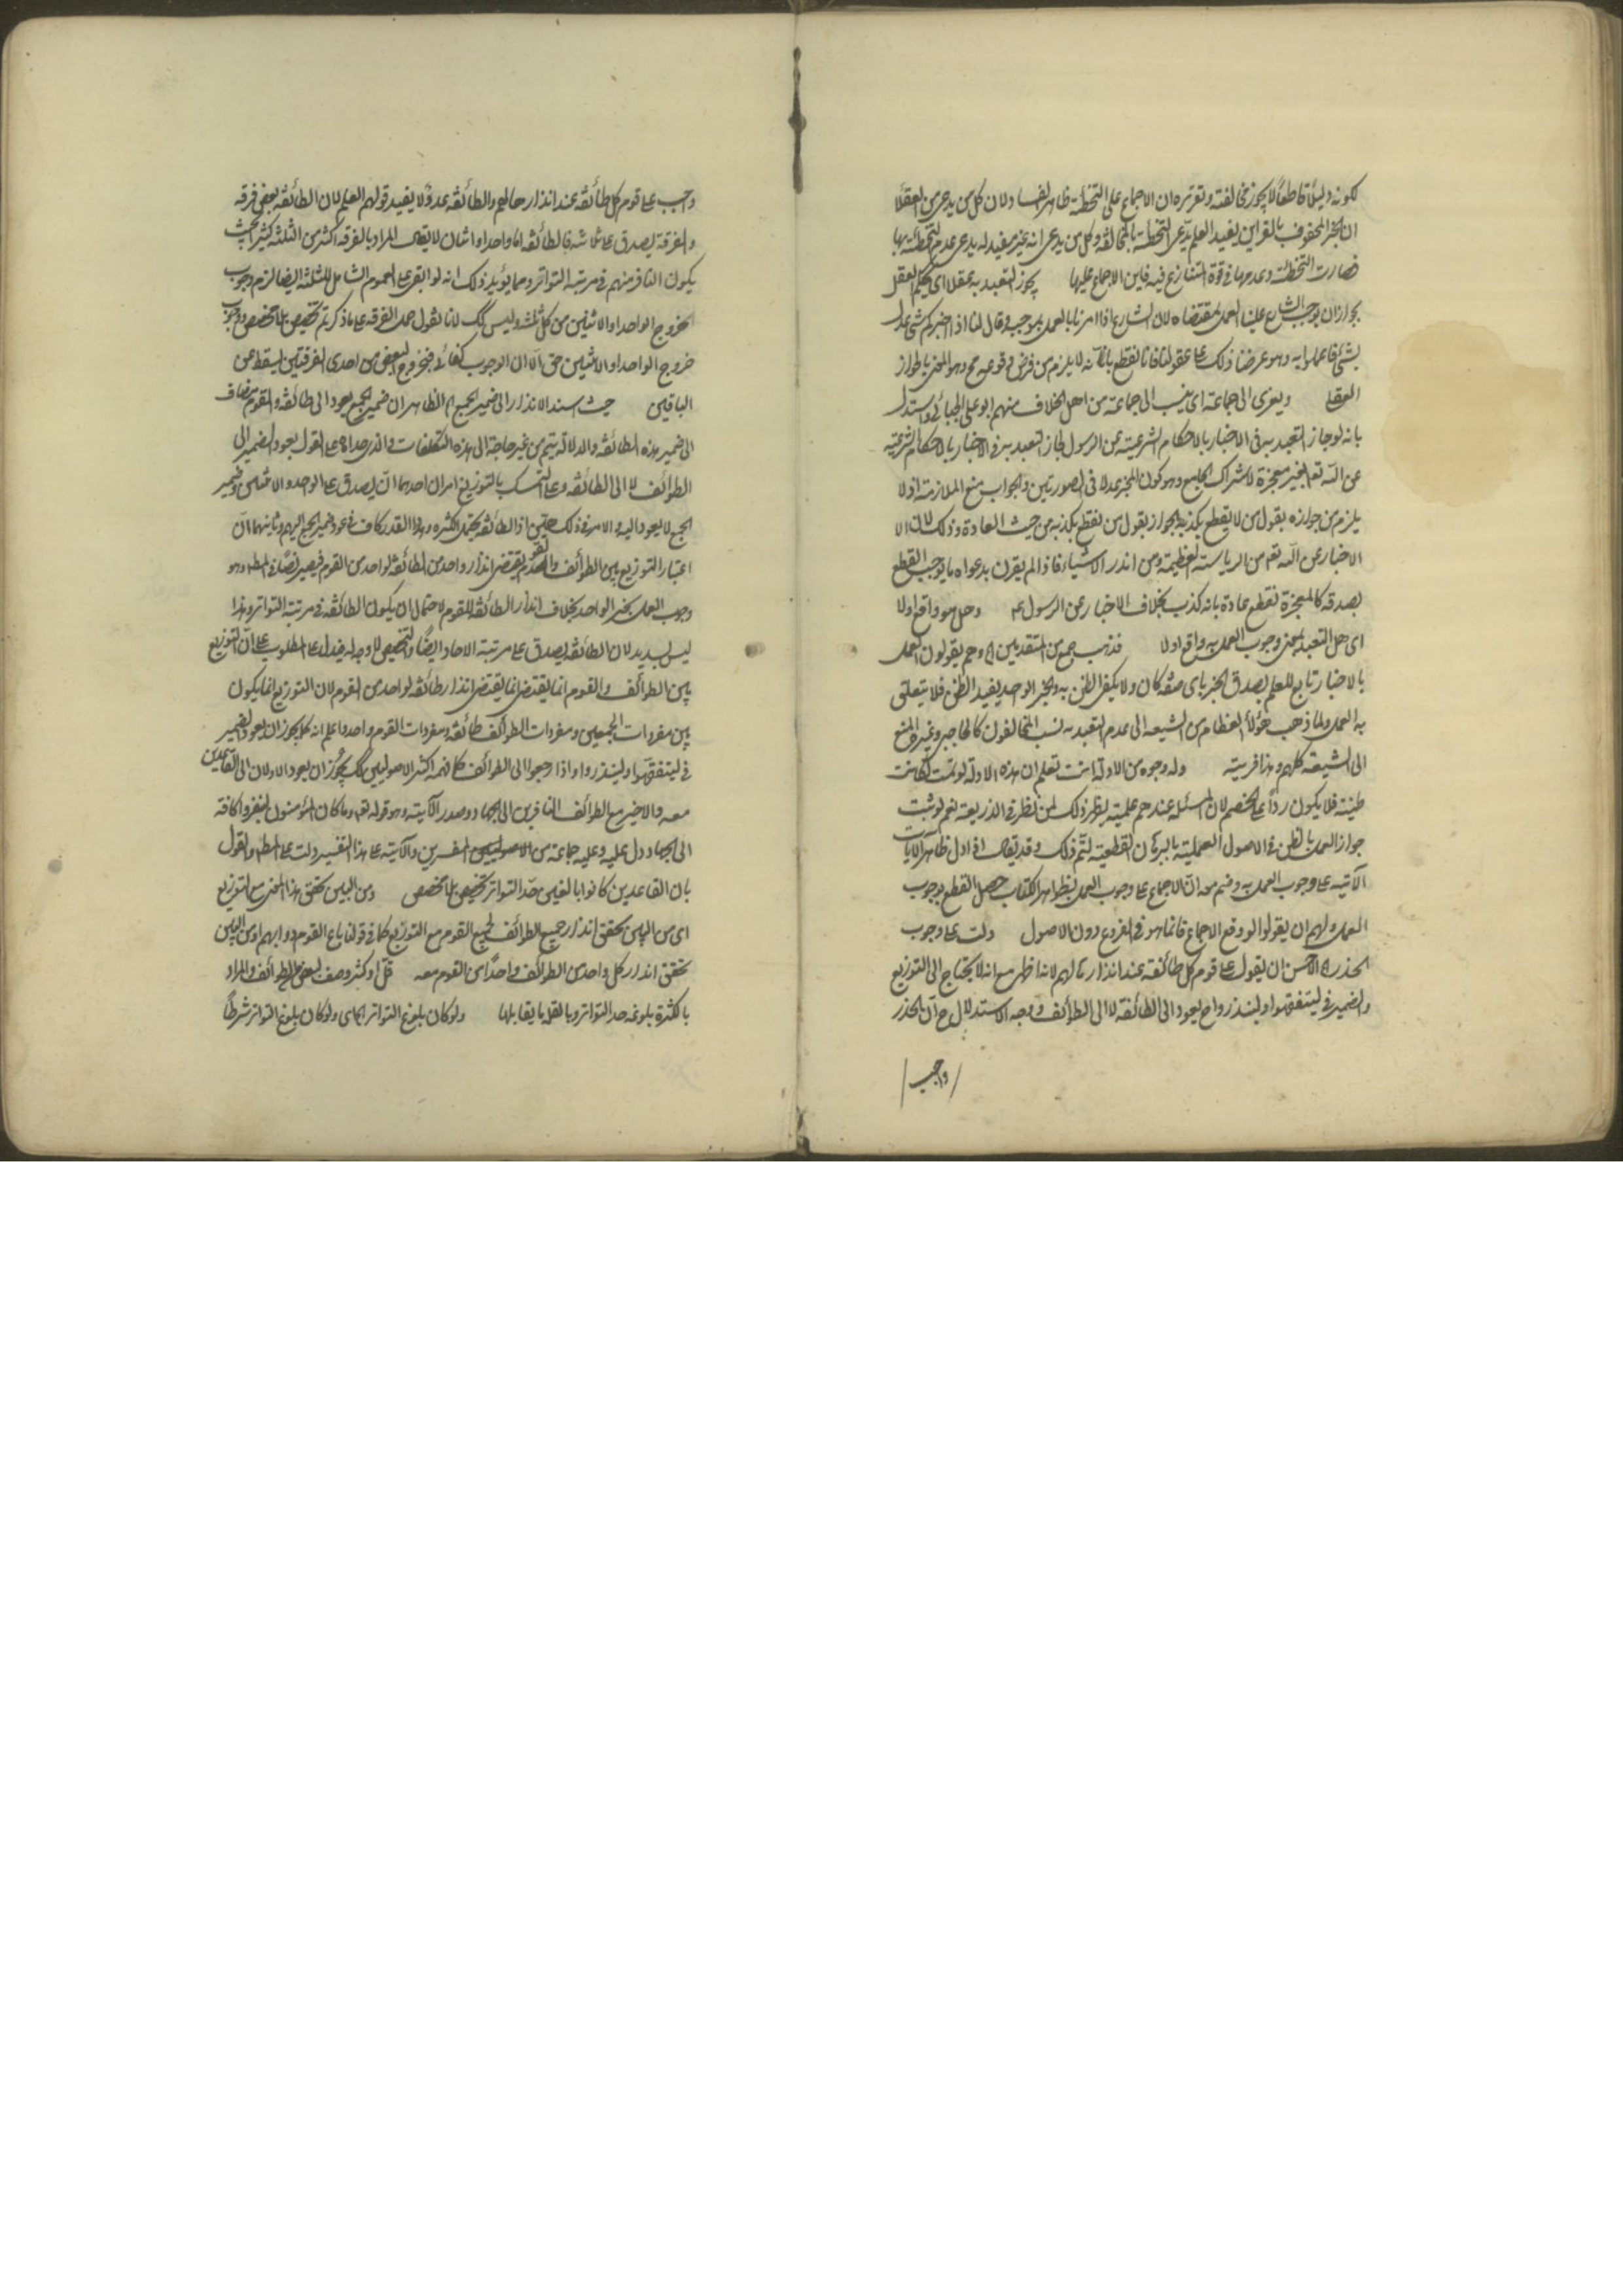 لكونه دليلا قاطعا لا يجوز مخالفته وتقريره ان الاجماع على التخطئة ظاهر ايضا ولان كل من يدعى من العقلا
ان الخبر المحفوف بالقراين يفيد العلم يدعى التخطئة بالمخالفة وكل من يدعى انه غير مفيد له يدعى عدم التخطئة بها
فصارت التخطئة وعدمها فى قوة المتنازع فيه فاين الاجماع عليها يجوز التعبد به عقلا اى يحكم العقل
بجواز ان يوجب الشارع علينا العمل بمقتضاه لان الشارع اذا امرنا بالعمل بموجبه وقال لنا اذا اخبركم شئ عدل
بشئ فاعملوا به وهو عرضنا ذلك على عقولنا فانا نقطع بانه لا يلزم من فرض وقوعه مح وهو المعنى بالجواز
العقلى ويعزى الى جماعة اى ينسب الى جماعة من اهل الخلاف منهم ابو على الجبائى واستدل
بانه لو جاز التعبد به فى الاخبار بالاحكام الشرعية عن الرسول لجاز التعبد به فى الاخبار بالاحكام الشرعية
عن الله تعم بغير معجزة لاشتراك الجامع وهو كون المخبر عدلا فى الصورتين والجواب منع الملازمة اذ لا
يلزم من جوازه بقول من لا يقطع بكذبه الجواز بقول من نقطع بكذبه من حيث العادة وذلك لان الا
الاخبار عن الله تعم من الرياسة العظيمة ومن اندر الاشياء فاذا لم يقرن بدعواه ما يوجب القطع
بصدقه كالمعجزة نقطع عادة بانه كذب بخلاف الاخبار عن الرسول عم وهل هو واقع او لا
اى هل التعبد بمعنى وجوب العمل به واقع او لا فذهب جمع من المتقدمين اه وهم يقولون العمل
بالاخبار تابع للعلم بصدق الخبر باى صفة كان ولا يكفى الظن به والخبر الواحد يفيد الظن فلا يتعلق
به العمل ولما ذهب هؤلاء العظام من الشيعة الى عدم التعبد به نسب المخالفون كالحاجبى وغيره المنع
الى الشيعة كلهم وهذا فرية وله وجوه من الادلة انت تعلم ان هذه الادلة لو تمت لكانت
ظنية فلا يكون ردا على الخصم لان المسئلة عندهم علمية يظهر ذلك لمن نظر فى الذريعة نعم لو ثبت
جواز العمل بالظن فى الاصول العملية بالبرهان القطعية لتم ذلك وقد يقال اذا دل ظاهر الايات
الاتية على وجوب العمل به وضم معه ان الاجماع على وجوب العمل بظواهر الكتاب حصل القطع بوجوب
العمل ولهم ان يقولوا لو وقع الاجماع فانما هو فى الفروع دون الاصول دلت على وجوب
الحذر اه الاحسن ان يقول على قوم كل طائفة عند انذارها لهم لانه اظهر مع انه لا يحتاج الى التوزيع
والضمير فى ليتفقهوا ولينذروا ح يعود الى الطائفة لا الى الطوائف ووجه الاستدلال ح ان الحذر
واجب
واجب على قوم كل طائفة عند انذارها لهم والطائفة عدد لا يفيد قولهم العلم لان الطائفة بعض فرقه
والفرقة يصدق على ثلاثة فالطائفة اما واحد او اثنان لا يقال المراد بالفرقة اكثر من الثلثة كثير بحيث
يكون النافر منهم فى مرتبة التواتر ومما يؤيد ذلك انه لو ابقى على العموم الشامل للثلثة ايضا لزم وجوب
خروج الواحد او الاثنين من كل ثلثة وليس كك لانا نقول حمل الفرقة على ما ذكرتم تخصيص بلا مخصص ووجوب
خروج الواحد او الاثنين حق الا ان الوجوب كفائى فبخروج البعض من احدى الفرقتين يسقط عن
الباقين حيث اسند الانذار الى ضمير الجمع اه الظاهر ان ضمير الجمع يعود الى طائفة والقوم مضاف
الى ضمير هذه الطائفة والدلالة يتم من غير حاجة الى هذه التكلفات والذى حداه على القول بعود الضمير الى
الطوائف لا الى الطائفة وعلى التمسك بالتوزيع امران احدهما ان يصدق على الواحد والاثنين وضمير
الجمع لا يعود اليه والامر فى ذلك هين اذ الطائفة يحتمل الكثرة وهذا القدر كاف فى عود ضمير الجمع اليهم وثانيهما ان
اعتبار التوزيع بين الطوائف والقوم يقتضى انذار واحد من الطائفة لواحد من القوم فيصير نصا فى المط وهو
وجوب العمل بخبر الواحد بخلاف انذار الطائفة للقوم لاحتمال ان يكون الطائفة فى مرتبة التواتر وهذا
ليس بسديد لان الطائفة يصدق على مرتبة الاحاد ايضا والتخصيص لا وجه له فيدل على المطلوب على ان التوزيع
بين الطوائف والقوم انما يقتضى انما يقتضى انذار طائفة لواحد من القوم لان التوزيع انما يكون
بين مفردات الجمعين ومفردات الطوائف طائفة ومفردات القوم واحد واعلم انه كما يجوز ان يعود الضمير
فى ليتفقهوا ولينذروا واذا رجعوا الى الطوائف كما فهمه اكثر الاصوليين كك يجوز ان يعود الاولان الى القاعدين
معه والاخير مع الطوائف النافرين الى الجهاد وصدر الآية وهو قوله تعم وما كان المؤمنون لينفروا كافة
الى الجهاد دل عليه وعليه جماعة من المفسرين والآية على هذا التفسير دلت على المط والقول
بان القاعدين كانوا بالغين حد التواتر تخصيص بلا مخصص ومن البين تحقق هذا المعنى مع التوزيع
اى من البين تحقق انذار جميع الطوائف لجميع القوم مع التوزيع كما فى قولنا باع القوم دوابهم او من البين
تحقق انذار كل واحد من الطوائف واحدا من القوم معه قل او كثر وصف لبعض الطوائف والمراد
بالكثرة بلوغه حد التواتر وبالقلة ما يقابلها ولو كان بلوغ التواتر اه اى ولو كان بلوغ التواتر شرطا